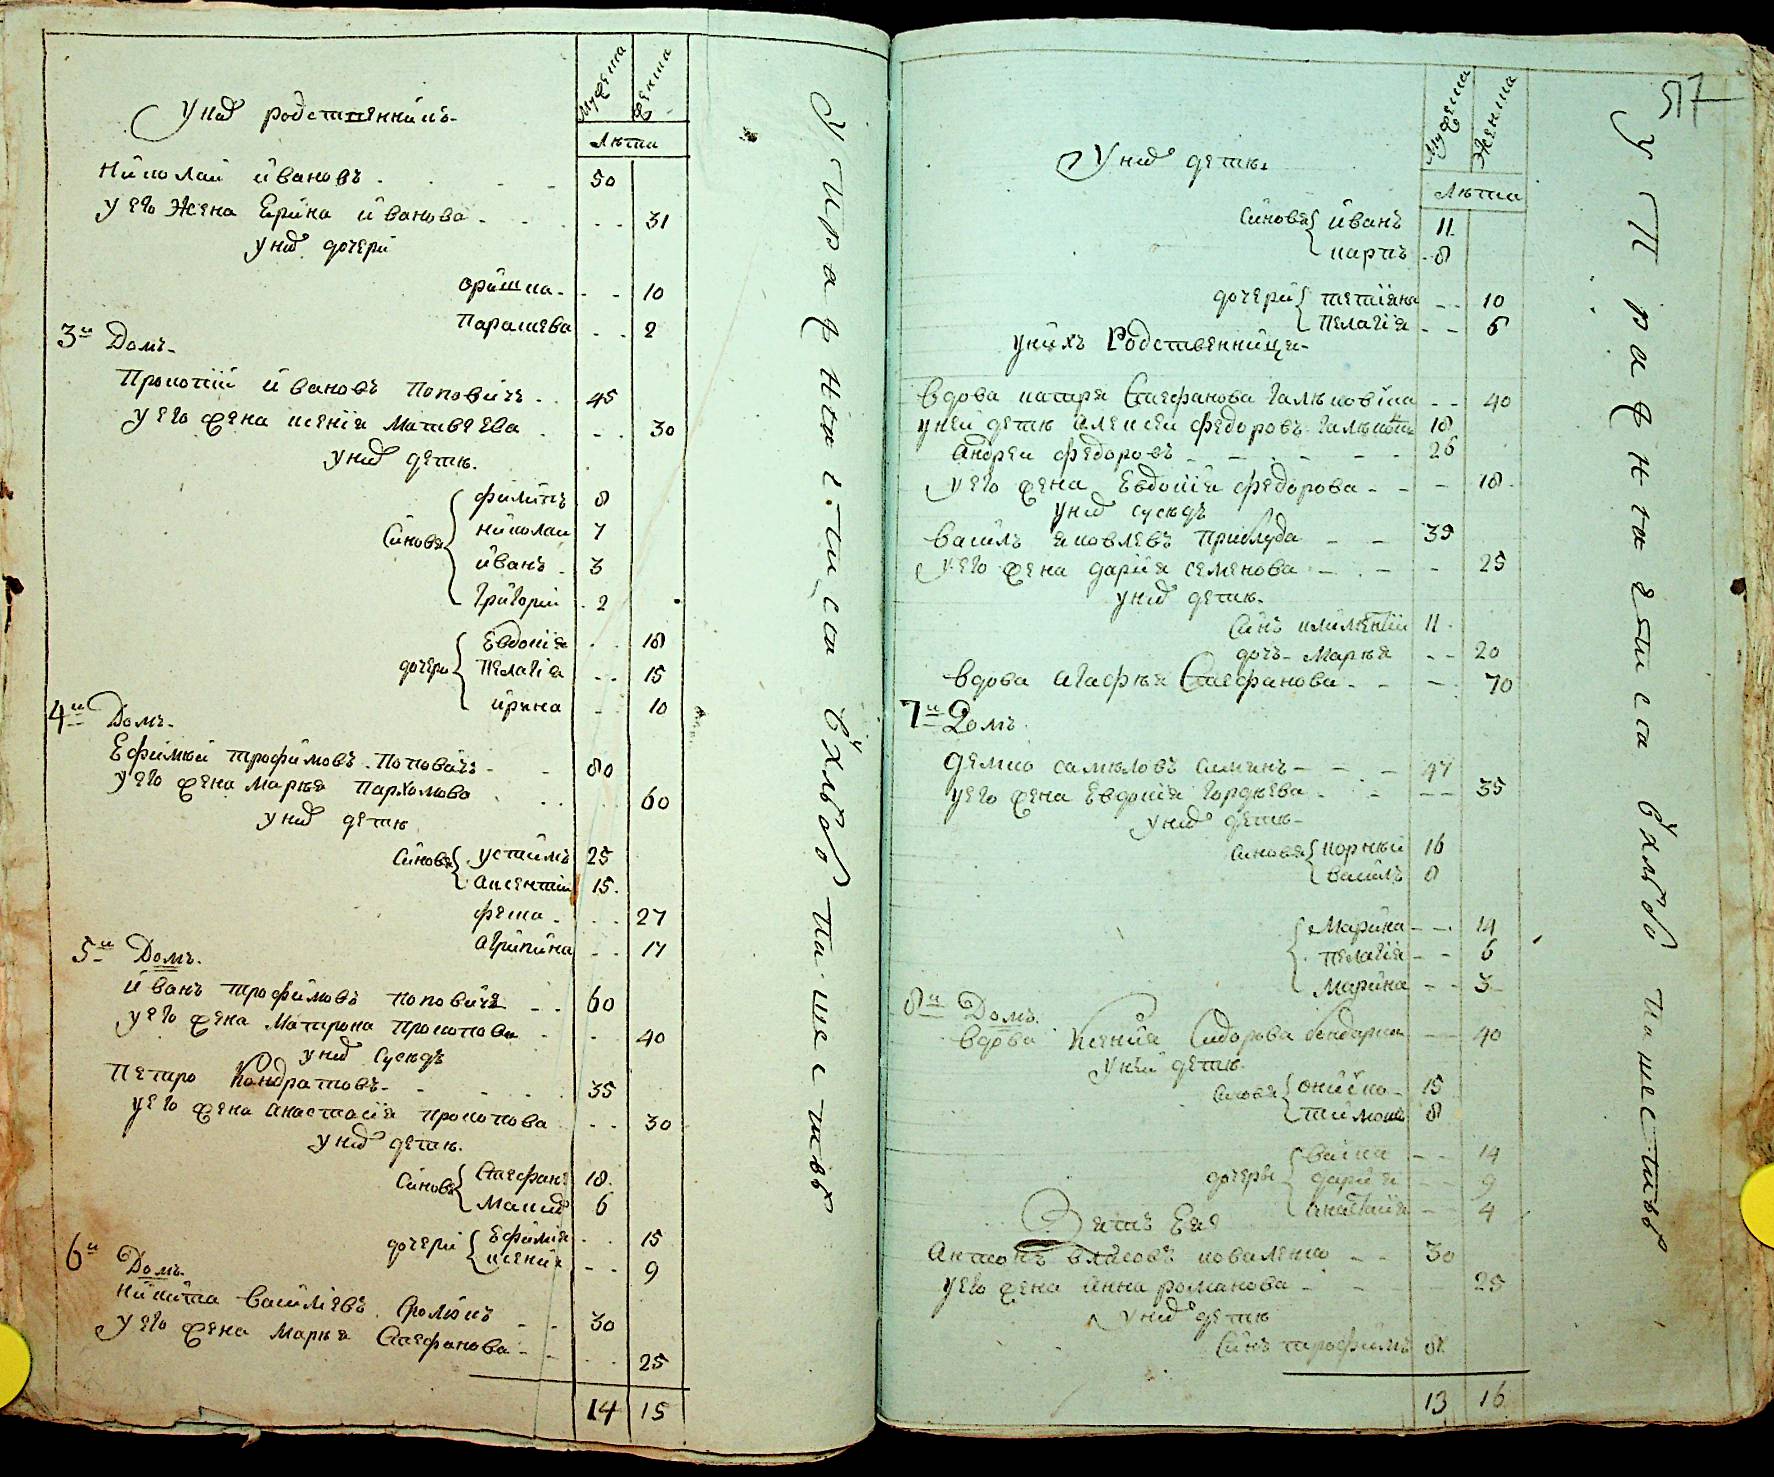 У нихъ родственникъ
мужеска
женска
лѣта
Николай Ивановъ 50
у его жена Ерина Иванова 31
у нихъ дочери
Оришка 10
Параскева 2
3й Домъ
Прокопій Ивановъ Поповичъ 45
у его жена Ксенія Матвеева 30
у нихъ дети
Синовя
Филипъ 8
Николай 7
Иванъ 3
Григорій 2
дочери
Евдокія 18
Пелагія 15
Ирина 10
4й Домъ
Ефимъй Трофимовъ Поповичъ 80
у его жена Марія Пархомова 60
у нихъ дети
Синовя
Устимъ 25
Аксентій 15
Феша 27
Агрипина 17
5й Домъ
Иванъ Трофимовъ Поповичъ 60
у его жена Матрона Прокопова 40
у нихъ сусѣдъ
Петро Кондратовъ 35
у его жена Анастасія Прокопова 30
у нихъ дети
Синовя
Стефанъ 18
Максимъ 6
дочери
Ефимія 15
Ксенія 9
6й Домъ
Никита Василіевъ 30
у его жена Марія Стефанова 25
14 15
57
У нихъ дети
мужеска
женска
лѣта
Синовя
Иванъ 11
Карпъ 8
дочери
Тетіяна 10
Пелагія 6
у нихъ родственници
Вдова Катря Стефанова 40
у ней дети Алексей Федоровъ 18
Андрей Федоровъ 26
у его жена Евдокія Федорова 18
у нихъ сусѣдъ
Василь Яковлевъ Приблуда 35
у его жена Дарія Семенова 25
у нихъ дети
Синъ Климентій 11
дочъ Марья 20
Вдова Агафья Стефанова 70
7й Домъ
Демко Самѣловъ 47
у его жена Евдокія Гордѣева 35
у нихъ дети
Синовя
Корнъй 16
Василь 8
Марина 14
Пелагія 6
Марина 3
8й Домъ
Вдова Ксенія Сидорова Бондарка 40
у ней дети
Синовя
Ониско 15
Тимошъ 8
дочеры
Васка 14
Дарія 9
Анастасія 4
Зять Еи
Антонъ Власовъ Коваленко 30
у его жена Анна Романова 25
у нихъ дети
Синъ Трофимъ 8
13 16